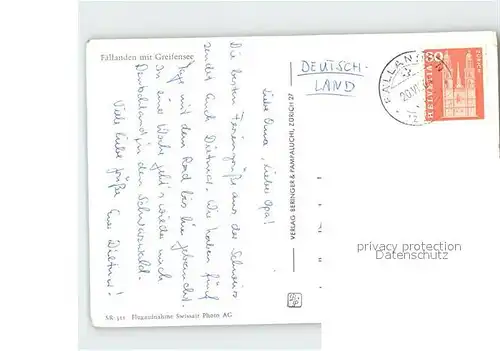 Fällanden mit Greifensee
Liebe Oma, lieber Opa!
Die besten Feriengrüße aus der Schweiz
sendet Euch Dietmar. Wir haben fünf
Tage mit dem Rad bis hier gebraucht.
In einer Woche geht's wieder nach
Deutschland, in den Schwarzwald.
Viele liebe Grüße Euer Dietmar!
VERLAG BERINGER & PAMPALUCHI, ZÜRICH
DEUTSCH-
LAND
FÄLLANDEN
HELVETIA
ZÜRICH
privacy protection
watermark
SR-311 Flugaufnahme Swissair Photo AG